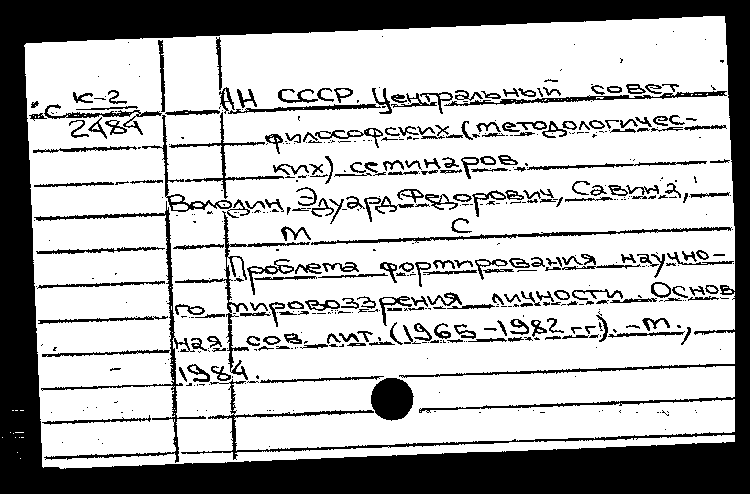 С К-2
2484
АН СССР. Центральный совет
философских (методологичес-
ких) семинаров.
Володин, Эдуард Федорович, Савина,
М С
Проблема формирования научно-
го мировоззрения личности. Основ
ная сов. лит. (1965-1982 гг). -М.,
1984.